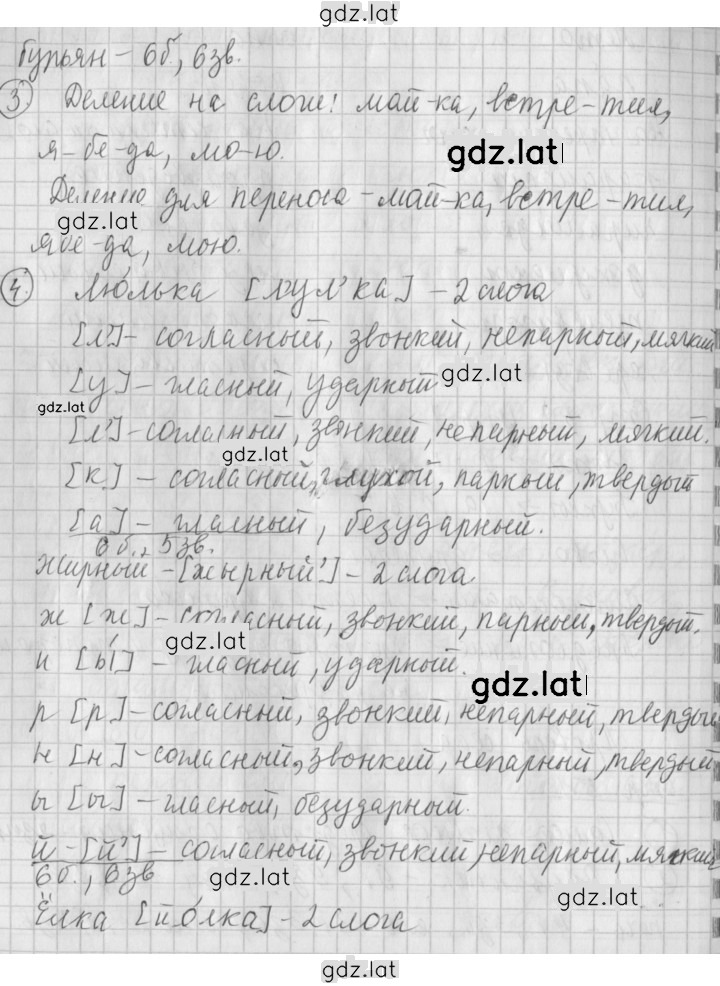 gdz.lat
Бурьян - 6б, 6зв.
3. Деление на слоги: май-ка, встре-тил,
я-бе-да, мо-ю.
gdz.lat
Деление для переноса - май-ка, встре-тил,
gdz.lat
ябе-да, мою.
4. Лю́лька [л'ул'ка] - 2 слога
[л'] - согласный, звонкий, непарный, мягкий
[у] - гласный, ударный
gdz.lat
gdz.lat
[л'] - согласный, звонкий, непарный, мягкий.
gdz.lat
[к] - согласный, глухой, парный, твердый
[а] - гласный, безударный.
6 б., 5 зв.
жирный - [жырный'] - 2 слога
ж [ж] - согласный, звонкий, парный, твердый.
gdz.lat
и [ы́] - гласный, ударный.
gdz.lat
р [р] - согласный, звонкий, непарный, тверды
н [н] - согласный, звонкий, непарный, твердый
ы [ы] - гласный, безударный.
й - [й'] - согласный, звонкий, непарный, мягкий
6 б., 6 зв
gdz.lat
gdz.lat
Ёлка [йо́лка] - 2 слога
gdz.lat